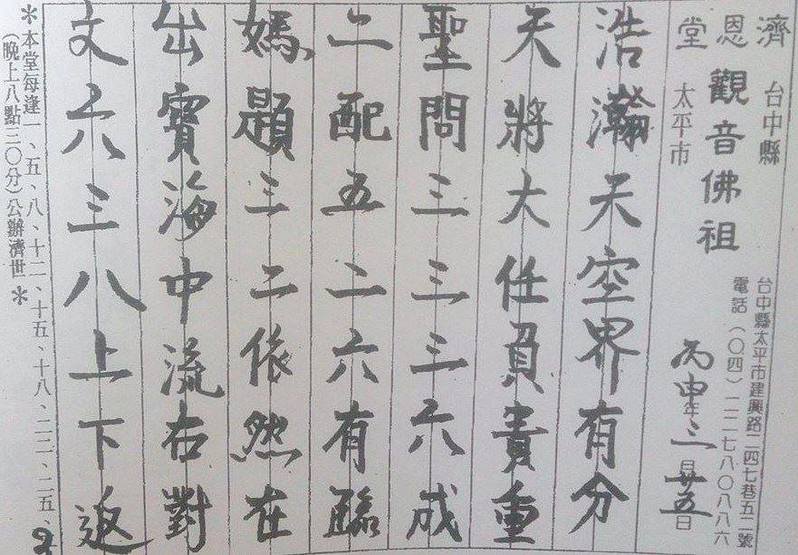 濟恩堂
台中縣
太平市
觀音佛祖
台中縣太平市建興路二四七巷五二號
電話（〇四）二二七八〇八八六
丙申年三月廿五日
浩瀚天空界有分
天將大任負責重
聖問三三三六成
二配五二六有臨
媽題三二依然在
出寶海中流右對
文六三八上下返
＊本堂每逢一、五、八、十二、十五、十八、二二、二五、
（晚上八點三〇分）公辦濟世＊